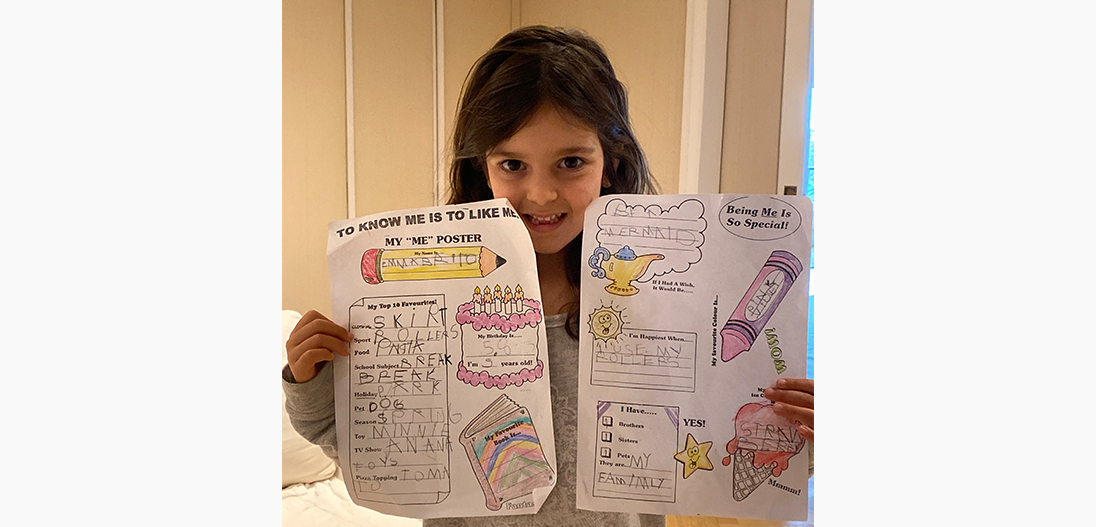 TO KNOW ME IS TO LIKE ME
MY "ME" POSTER
My Name Is
My Top 10 Favourites!
SKIRT
Sport ROLLERS
Food PASTA
School Subject BREAK
BREAK
Holiday PARK
Pet DOG
Season SPRING
Toy MINNIE
TV Show ANANA
TOYS
Pizza Topping TOMA
TO
My Birthday Is.....
I'm 5 years old!
My Favourite
Book Is...
BE A
MERMAID
If I Had A Wish,
It Would Be.....
Being Me Is
So Special!
My Favourite Colour Is...
PINK
WOW!
I'm Happiest When....
I USE MY
ROLLERS
I Have.....
1 Brothers
1 Sisters
1 Pets
They are... MY
FAMIMLY
YES!
STRAW
Mmmm!